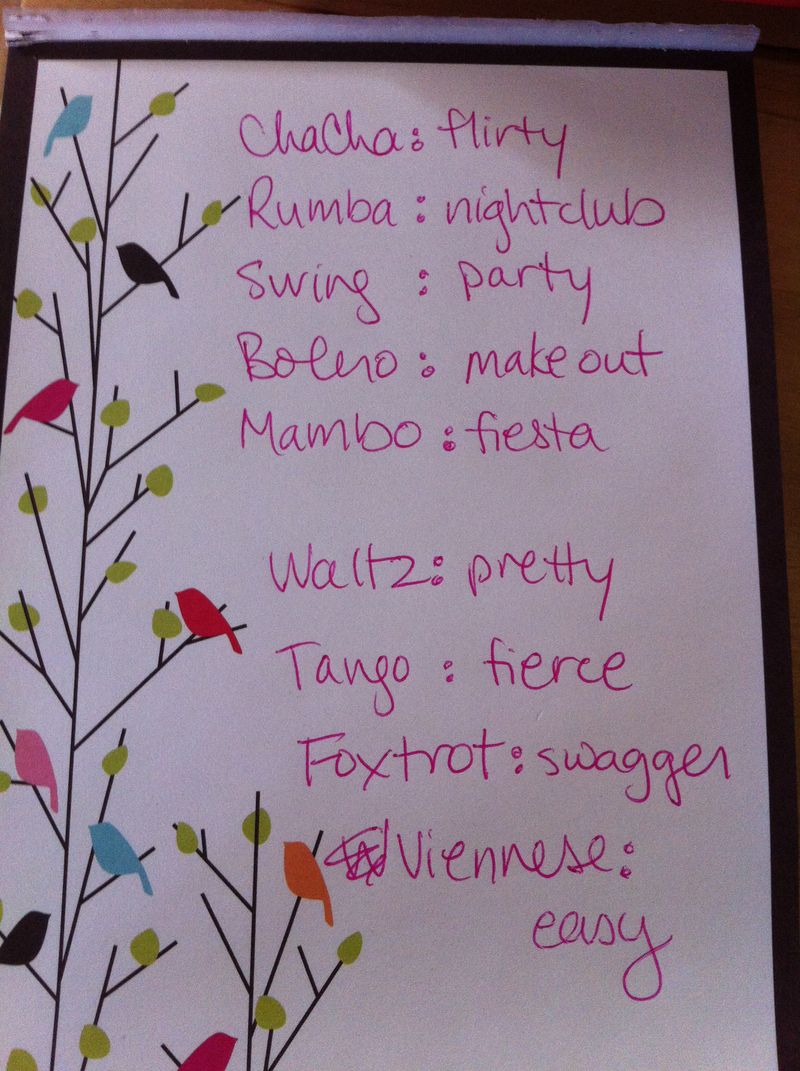 ChaCha: flirty
Rumba: nightclub
Swing : party
Bolero: make out
Mambo: fiesta
Waltz: pretty
Tango : fierce
Foxtrot: swagger
Viennese:
easy